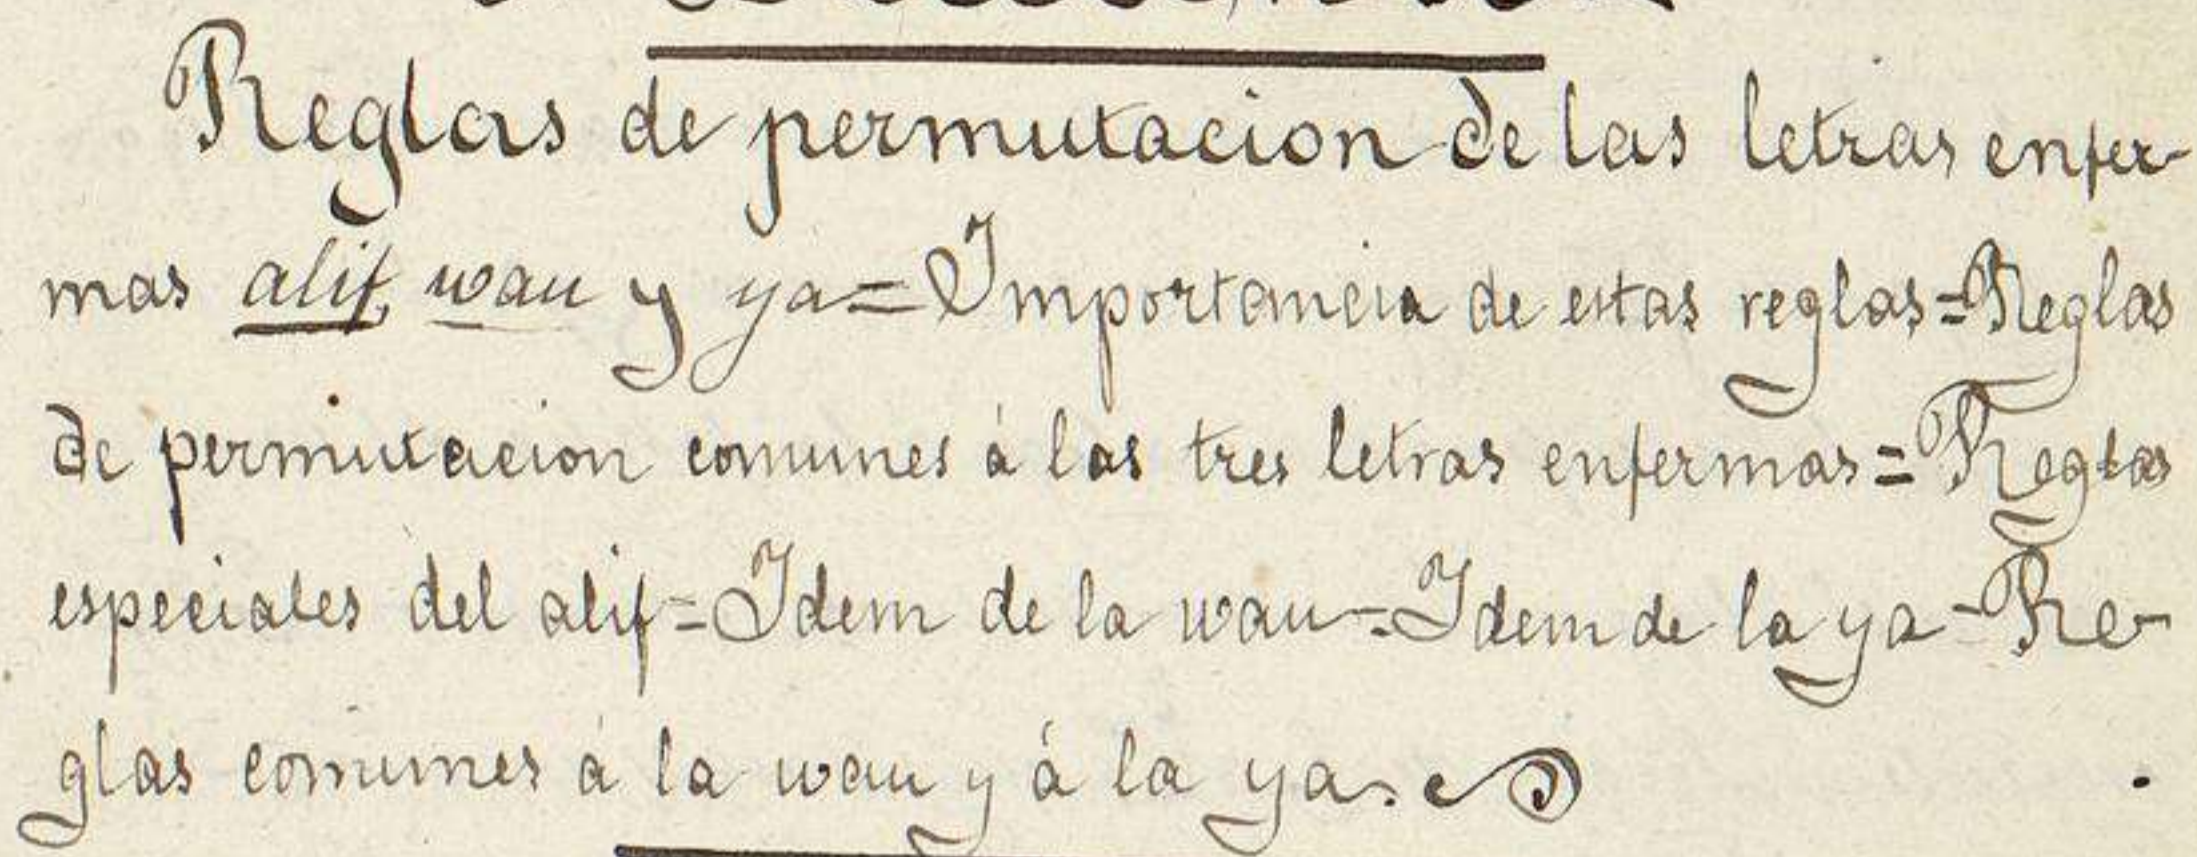 Reglas de permutacion de las letras enfer-
mas alif, wau y ya=Importancia de estas reglas=Reglas
de permutacion comunes á las tres letras enfermas=Reglas
especiales del alif=Idem de la wau=Idem de la ya-Re-
glas comunes á la wau y á la ya.